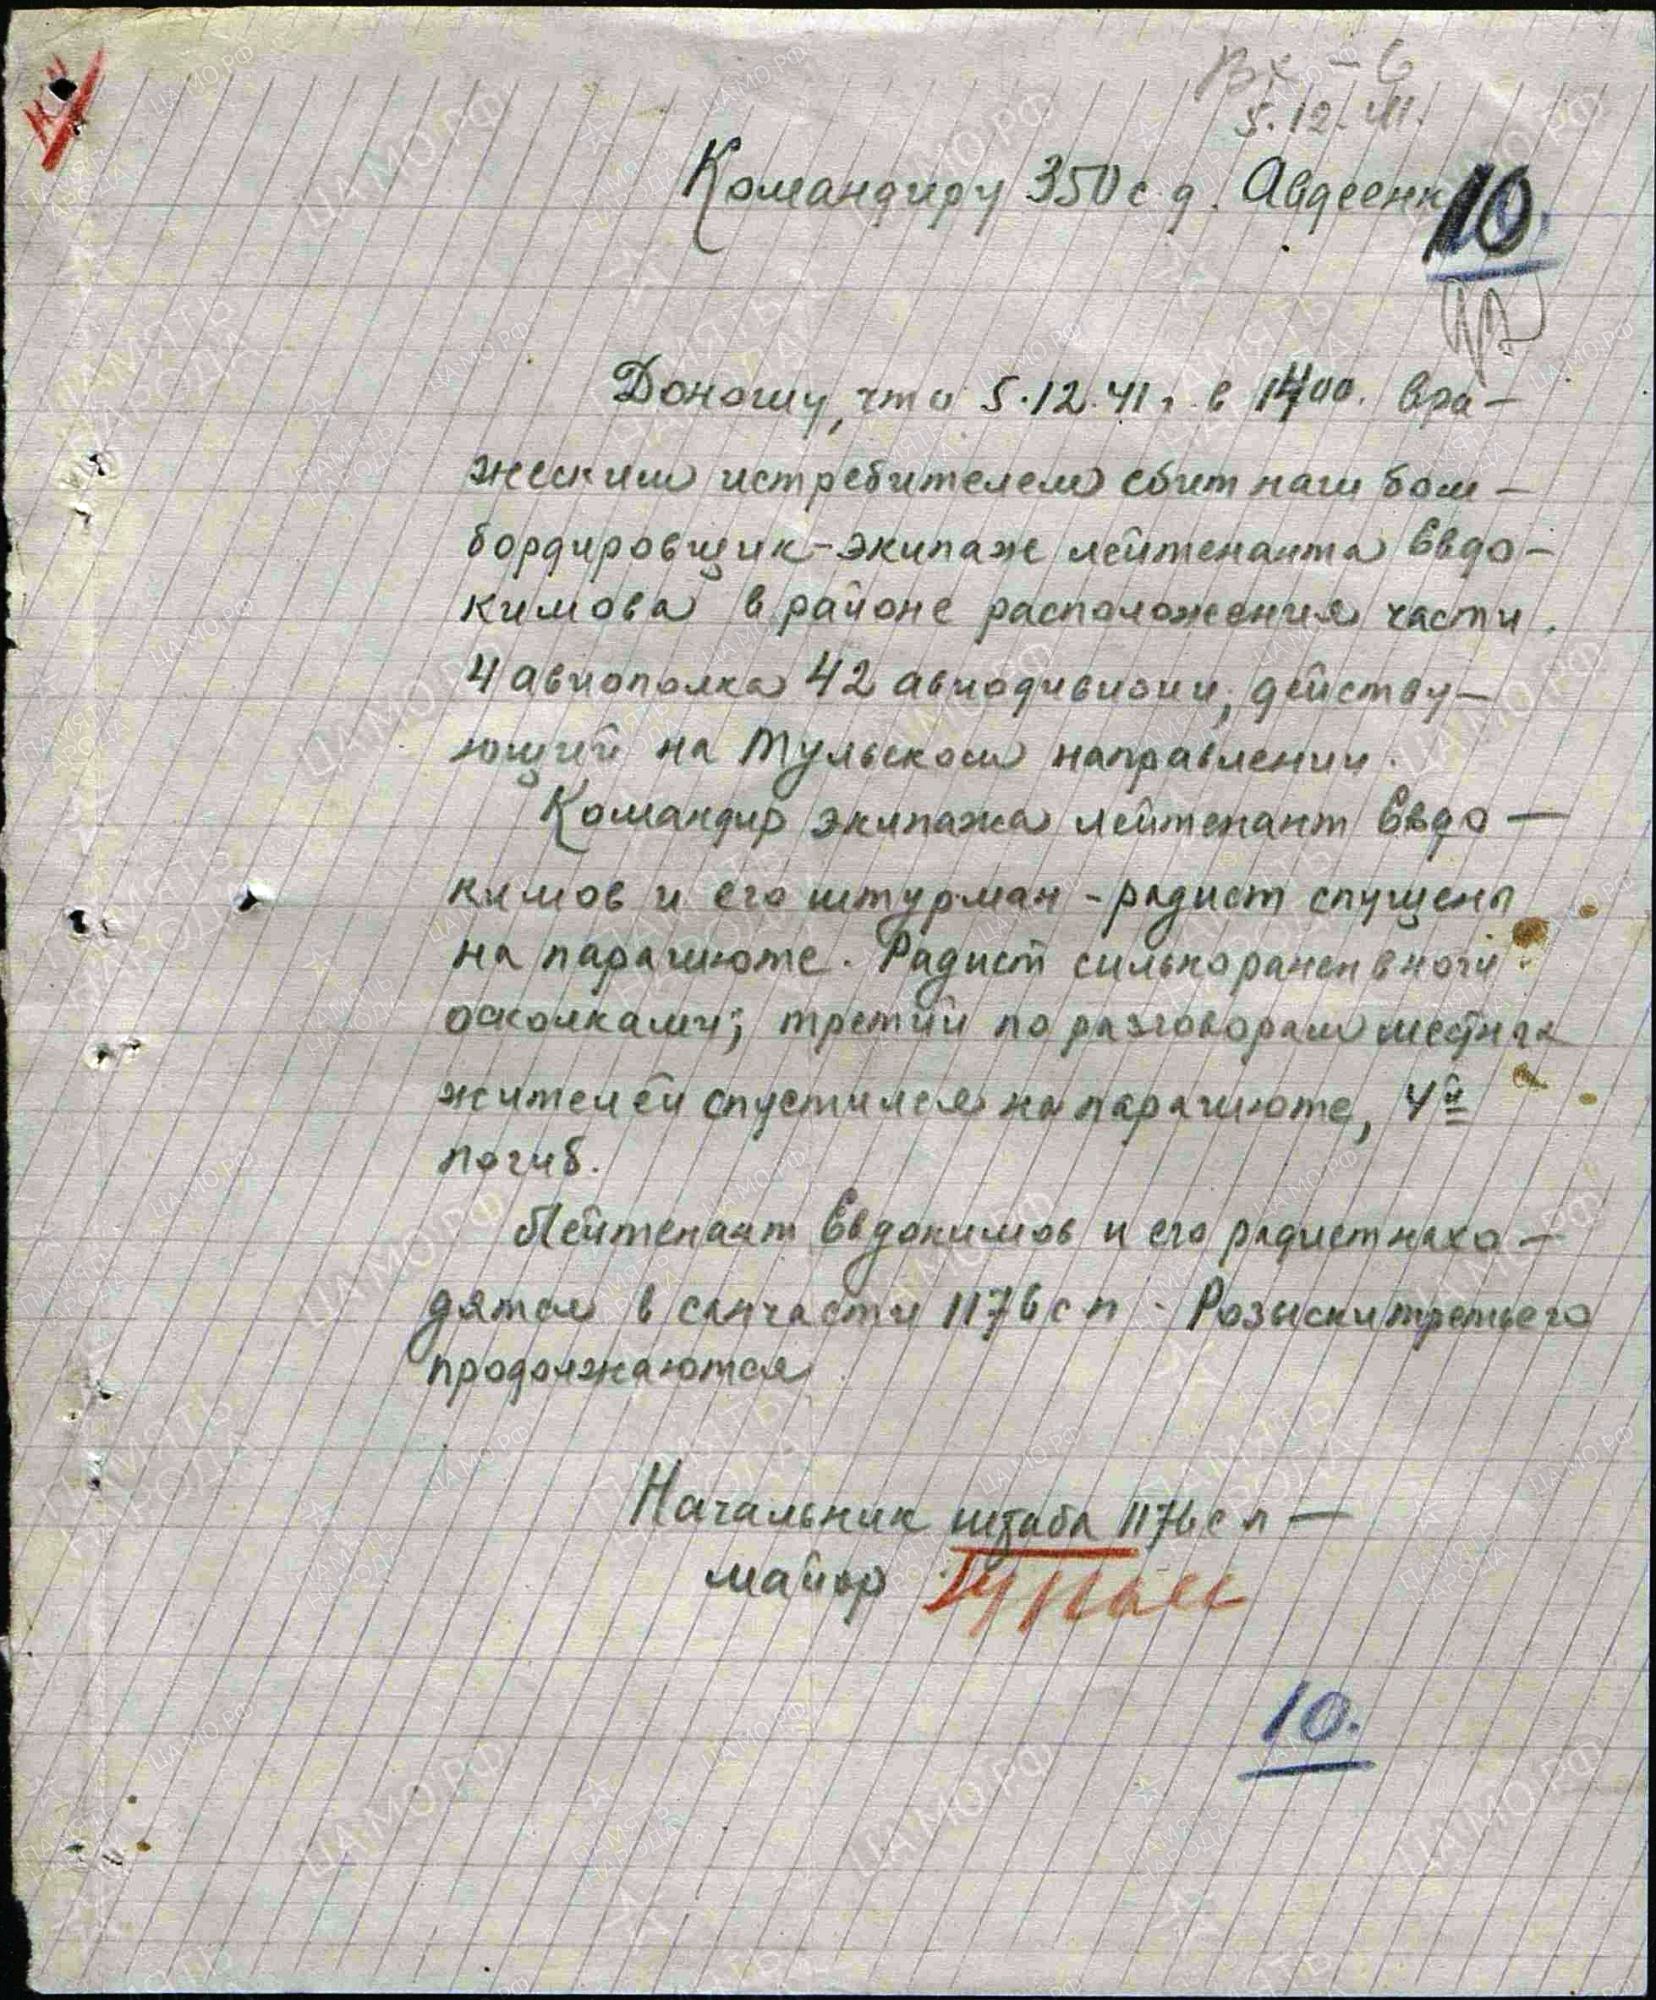 Вх - 6
5.12.41.
Командиру 350 с.д. Авдеенк
10.
Доношу, что 5.12.41 г. в 1400. вра-
жеским истребителем сбит наш бом-
бордировщик-экипаж лейтенанта Евдо-
кимова в районе расположения части.
4 авиополка 42 авиодивизии, действу-
ющий на Тульском направлении.
Командир экипажа лейтенант Евдо-
кимов и его штурман-радист спущены
на парашюте. Радист сильно ранен в ноги
осколками; третий по разговорам местных
жителей спустился на парашюте, 4й
погиб.
Лейтенант Евдокимов и его радист нахо-
дятся в санчасти 1176 с п. Розыски третьего
продолжаются
Начальник штаба 1176 с п -
майор
10.